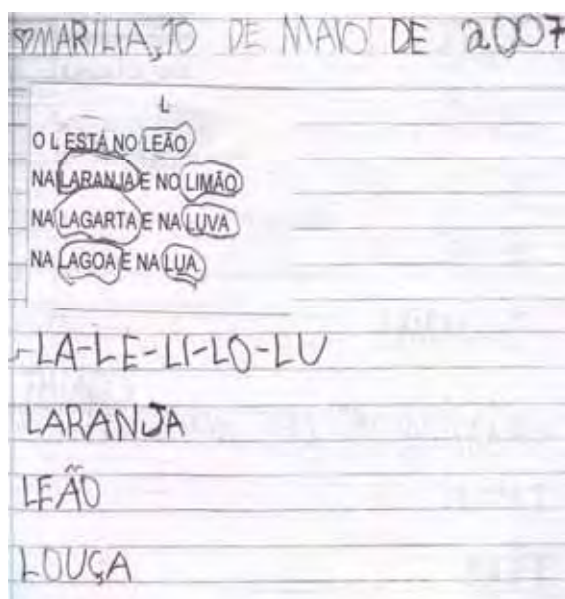 MARÍLIA, 10 DE MAIO DE 2007
L
O L ESTÁ NO LEÃO
NA LARANJA E NO LIMÃO
NA LAGARTA E NA LUVA
NA LAGOA E NA LUA
-LA-LE-LI-LO-LU
LARANJA
LEÃO
LOUÇA